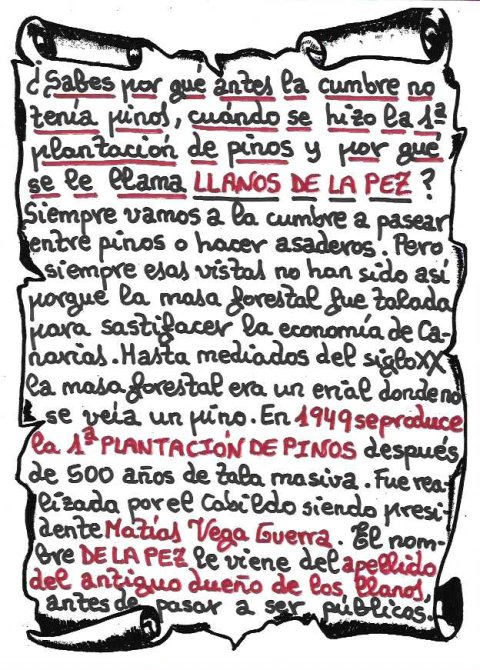 ¿Sabes por qué antes la cumbre no
tenía pinos, cuándo se hizo la 1ª
plantación de pinos y por qué
se le llama LLANOS DE LA PEZ?
Siempre vamos a la cumbre a pasear
entre pinos o hacer asaderos. Pero
siempre esas vistas no han sido así
porque la masa forestal fue talada
para sastifacer la economía de Ca-
narias. Hasta mediados del siglo XX
la masa forestal era un erial donde no
se veía un pino. En 1949 se produce
la 1ª PLANTACIÓN DE PINOS después
de 500 años de tala masiva. Fue rea-
lizada por el Cabildo siendo presi-
dente Matías Vega Guerra. El nom-
bre DE LA PEZ le viene del apellido
del antiguo dueño de los llanos,
antes de pasar a ser públicos.